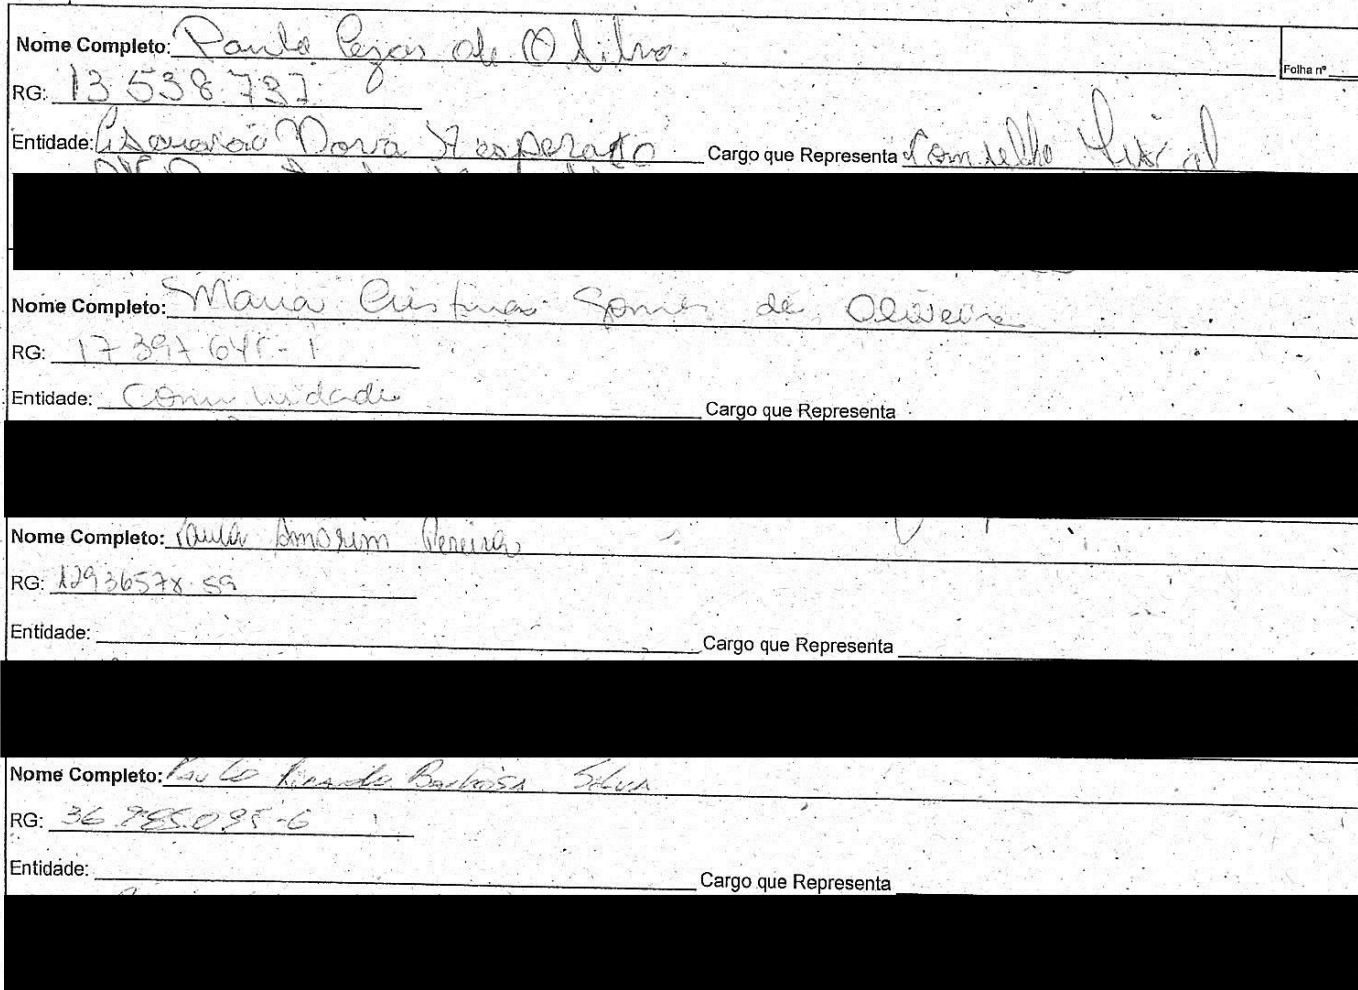 Nome Completo: Paulo Cezar de O Silva
Folha nº
RG: 13 538 737
Entidade: Nova Cargo que Representa Conselho Fiscal
Nome Completo: Maria Cristina Gomes de Oliveira
RG: 17 397 641 - 1
Entidade: Comunidade Cargo que Representa
Nome Completo: Paula Amorim Pereira
RG: 12936578 59
Entidade: Cargo que Representa
Nome Completo: Paulo Ricardo Barbosa Silva
RG: 36
Entidade: Cargo que Representa